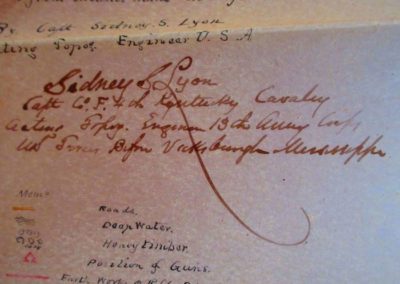 By Capt Sidney. S. Lyon
cting Topog. Engineer U. S. A
Sidney S Lyon
Capt Co. F. 4th Kentucky Cavalry
Acting Topog. Engineer 13th Army Corps
Vicksburgh Mississippi
Roads.
Deep Water.
Heavy Timber.
Position of Guns.
Earth Works